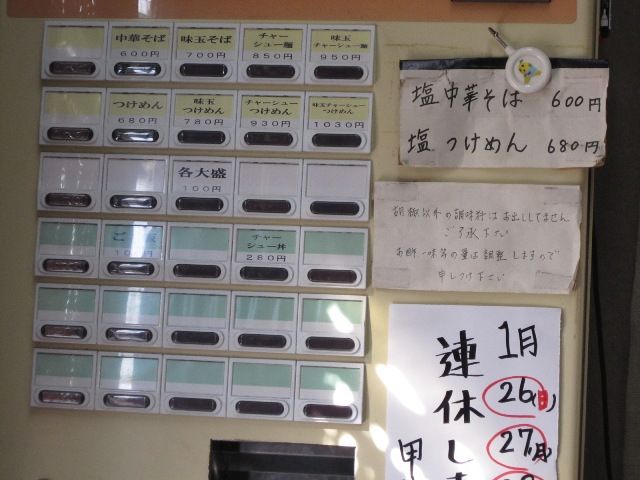 中華そば
600円
味玉そば
700円
チャー
シュー麺
850円
味玉
チャーシュー麺
950円
つけめん
680円
味玉
つけめん
780円
チャーシュー
つけめん
930円
味玉チャーシュー
つけめん
1030円
各大盛
100円
チャー
シュー丼
280円
塩中華そば 600円
塩つけめん 680円
胡椒以外の調味料はお出ししてません
ご了承下さい
お酢・一味等の量は調整しますので
申しつけ下さい
1月
26(日)
27(月)
連休しま